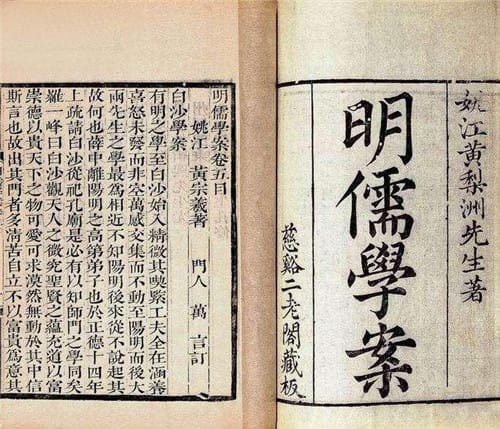 姚江黃梨洲先生著
明儒學案
慈谿二老閣藏板
明儒學案卷五目
姚江 黃宗羲著 門人 萬 言訂
白沙學案
有明之學至白沙始入精微其喫緊工夫全在涵養
喜怒未發而非空萬感交集而不動至陽明而後大
兩先生之學最爲相近不知陽明後來從不說起其
故何也薛中離陽明之高第弟子也於正德十四年
上疏請白沙從祀孔廟是必有以知師門之學同矣
羅一峰曰白沙觀天人之微究聖賢之蘊充道以富
崇德以貴天下之物可愛可求漠然無動於其中信
斯言也故出其門者多清苦自立不以富貴爲意其